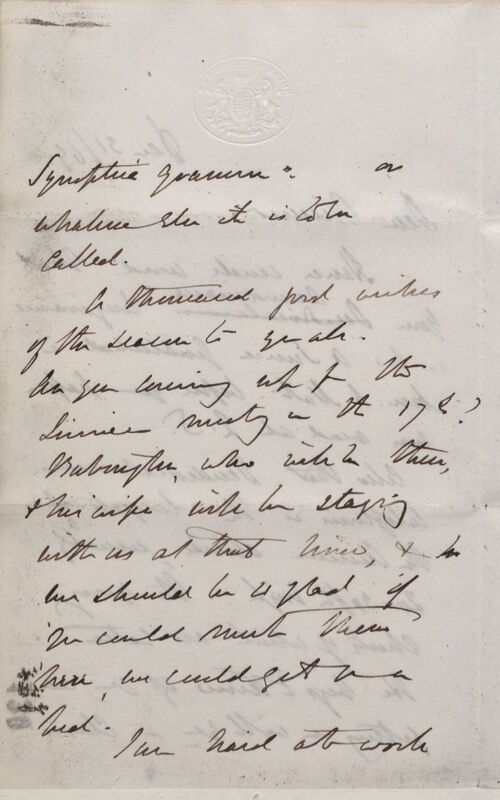 Synoptica Graminum". or
whatever else it is to be
called.
A thousand good wishes
of the season to you all.
Are you coming up for the
Linnean meeting on the 17th?
Babington, who will be there,
& his wife will be staying
with us at that time, &
we should be so glad if
you could meet them
here, we could get you a
bed.
I am hard at work